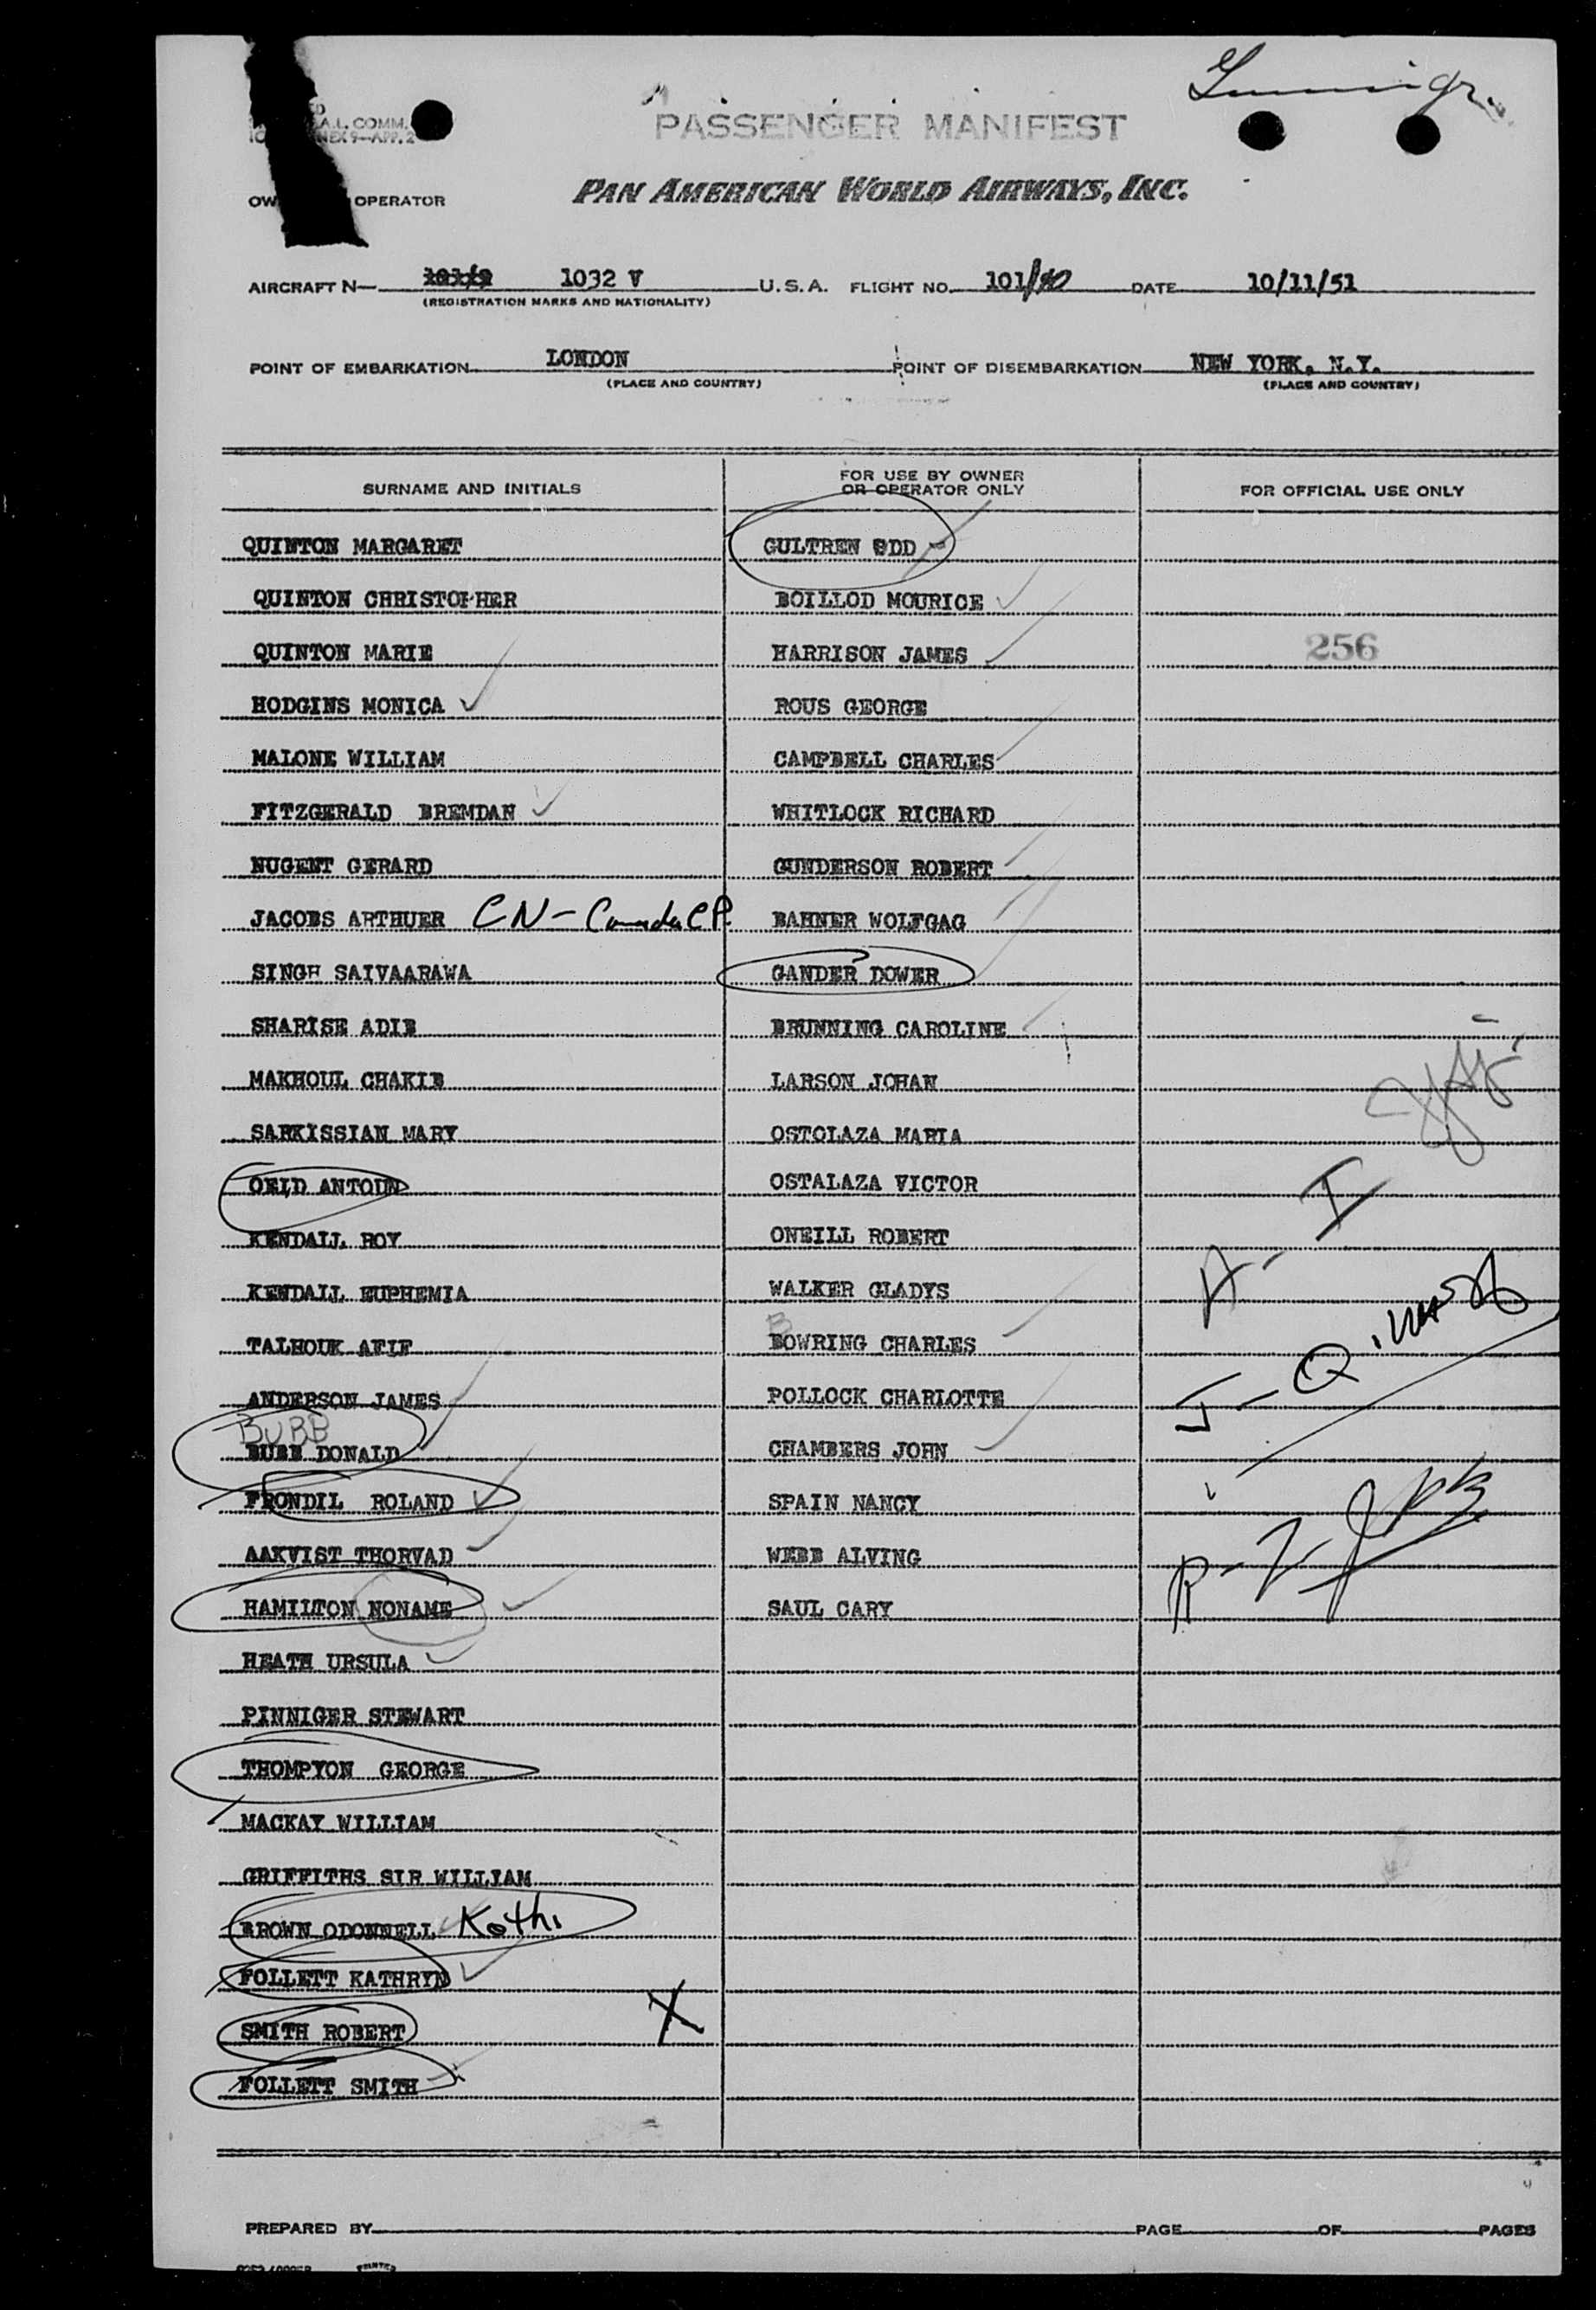 A.L. COMM.
NEX 9—APP. 2
PASSENGER MANIFEST
OPERATOR
PAN AMERICAN WORLD AIRWAYS, INC.
AIRCRAFT N— 1032 V U.S.A. FLIGHT NO. 101/10 DATE 10/11/51
(REGISTRATION MARKS AND NATIONALITY)
POINT OF EMBARKATION LONDON POINT OF DISEMBARKATION NEW YORK, N.Y.
(PLACE AND COUNTRY) (PLACE AND COUNTRY)
SURNAME AND INITIALS
QUINTON MARGARET
QUINTON CHRISTOPHER
QUINTON MARIE
HODGINS MONICA
MALONE WILLIAM
FITZGERALD BREMDAN
NUGENT GERARD
JACOBS ARTHUER CN - Canada CP.
SINGH SAIVAARAWA
SHARISE ADIB
MAKHOUL CHAKIB
SARKISSIAN MARY
OEID ANTOUN
KENDALL ROY
KENDALL EUPHEMIA
TALHOUK AFIF
ANDERSON JAMES
BUBB
BUBB DONALD
FRONDIL ROLAND
AAKVIST THORVAD
HAMILTON NONAME
HEATH URSULA
PINNIGER STEWART
THOMPYON GEORGE
MACKAY WILLIAM
GRIFFITHS SIR WILLIAM
BROWN ODONNELL Kathi
FOLLETT KATHRYN
SMITH ROBERT X
FOLLETT SMITH
FOR USE BY OWNER
OR OPERATOR ONLY
GULTREN ODD
BOILLOD MOURICE
HARRISON JAMES
ROUS GEORGE
CAMPBELL CHARLES
WHITLOCK RICHARD
GUNDERSON ROBERT
BAHNER WOLFGAG
GANDER DOWER
BRUNNING CAROLINE
LARSON JOHAN
OSTOLAZA MARIA
OSTALAZA VICTOR
ONEILL ROBERT
WALKER GLADYS
B
BOWRING CHARLES
POLLOCK CHARLOTTE
CHAMBERS JOHN
SPAIN NANCY
WEBB ALVING
SAUL CARY
FOR OFFICIAL USE ONLY
256
I
A-
PREPARED BY PAGE OF PAGES